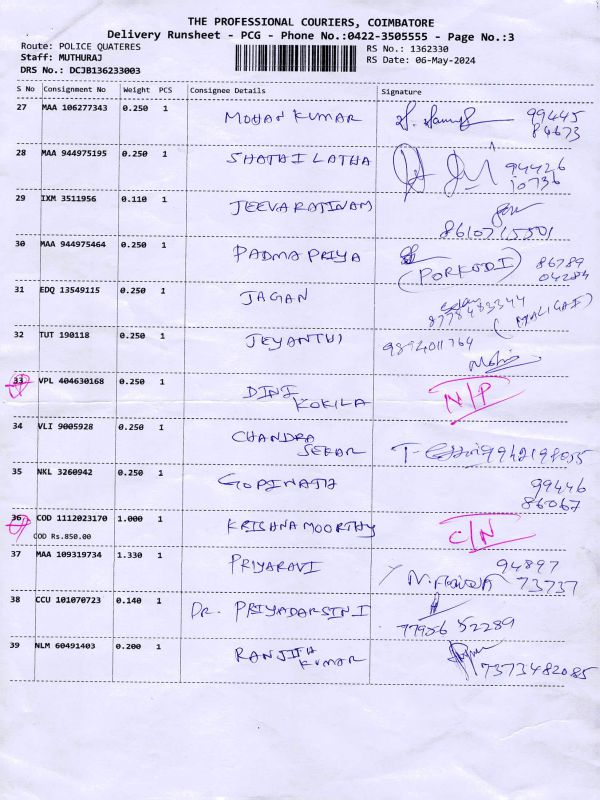 THE PROFESSIONAL COURIERS, COIMBATORE
Delivery Runsheet - PCG - Phone No.:0422-3505555 - Page No.:3
Route: POLICE QUATERES RS No.: 1362330
Staff: MUTHURAJ RS Date: 06-May-2024
DRS No.: DCJB136233003
S No Consignment No Weight PCS Consignee Details Signature
27 MAA 106277343 0.250 1 MOHAN KUMAR 99445
84673
28 MAA 944975195 0.250 1 SHATHI LATHA 94426
10736
29 IXM 3511956 0.110 1 JEEVARATINAM
8610715501
30 MAA 944975464 0.250 1 PADMA PRIYA (PORKODI) 86789
04284
31 EDQ 13549115 0.250 1 JAGAN 8778483344
(MALIGAI)
32 TUT 190118 0.250 1 JEYANTHI 9894011764
33 VPL 404630168 0.250 1 DINI N/P
KOKILA
34 VLI 9005928 0.250 1 CHANDRA
SEKAR 9942198055
35 NKL 3260942 0.250 1 GOPINATH 99446
86067
36 COD 1112023170 1.000 1 KRISHNA MOORTHY C/N
COD Rs.850.00
37 MAA 109319734 1.330 1 PRIYARAVI 94897
73737
38 CCU 101070723 0.140 1 DR. PRIYADARSINI
77956 52289
39 NLM 60491403 0.200 1 RANJITH
KUMAR 7373482085